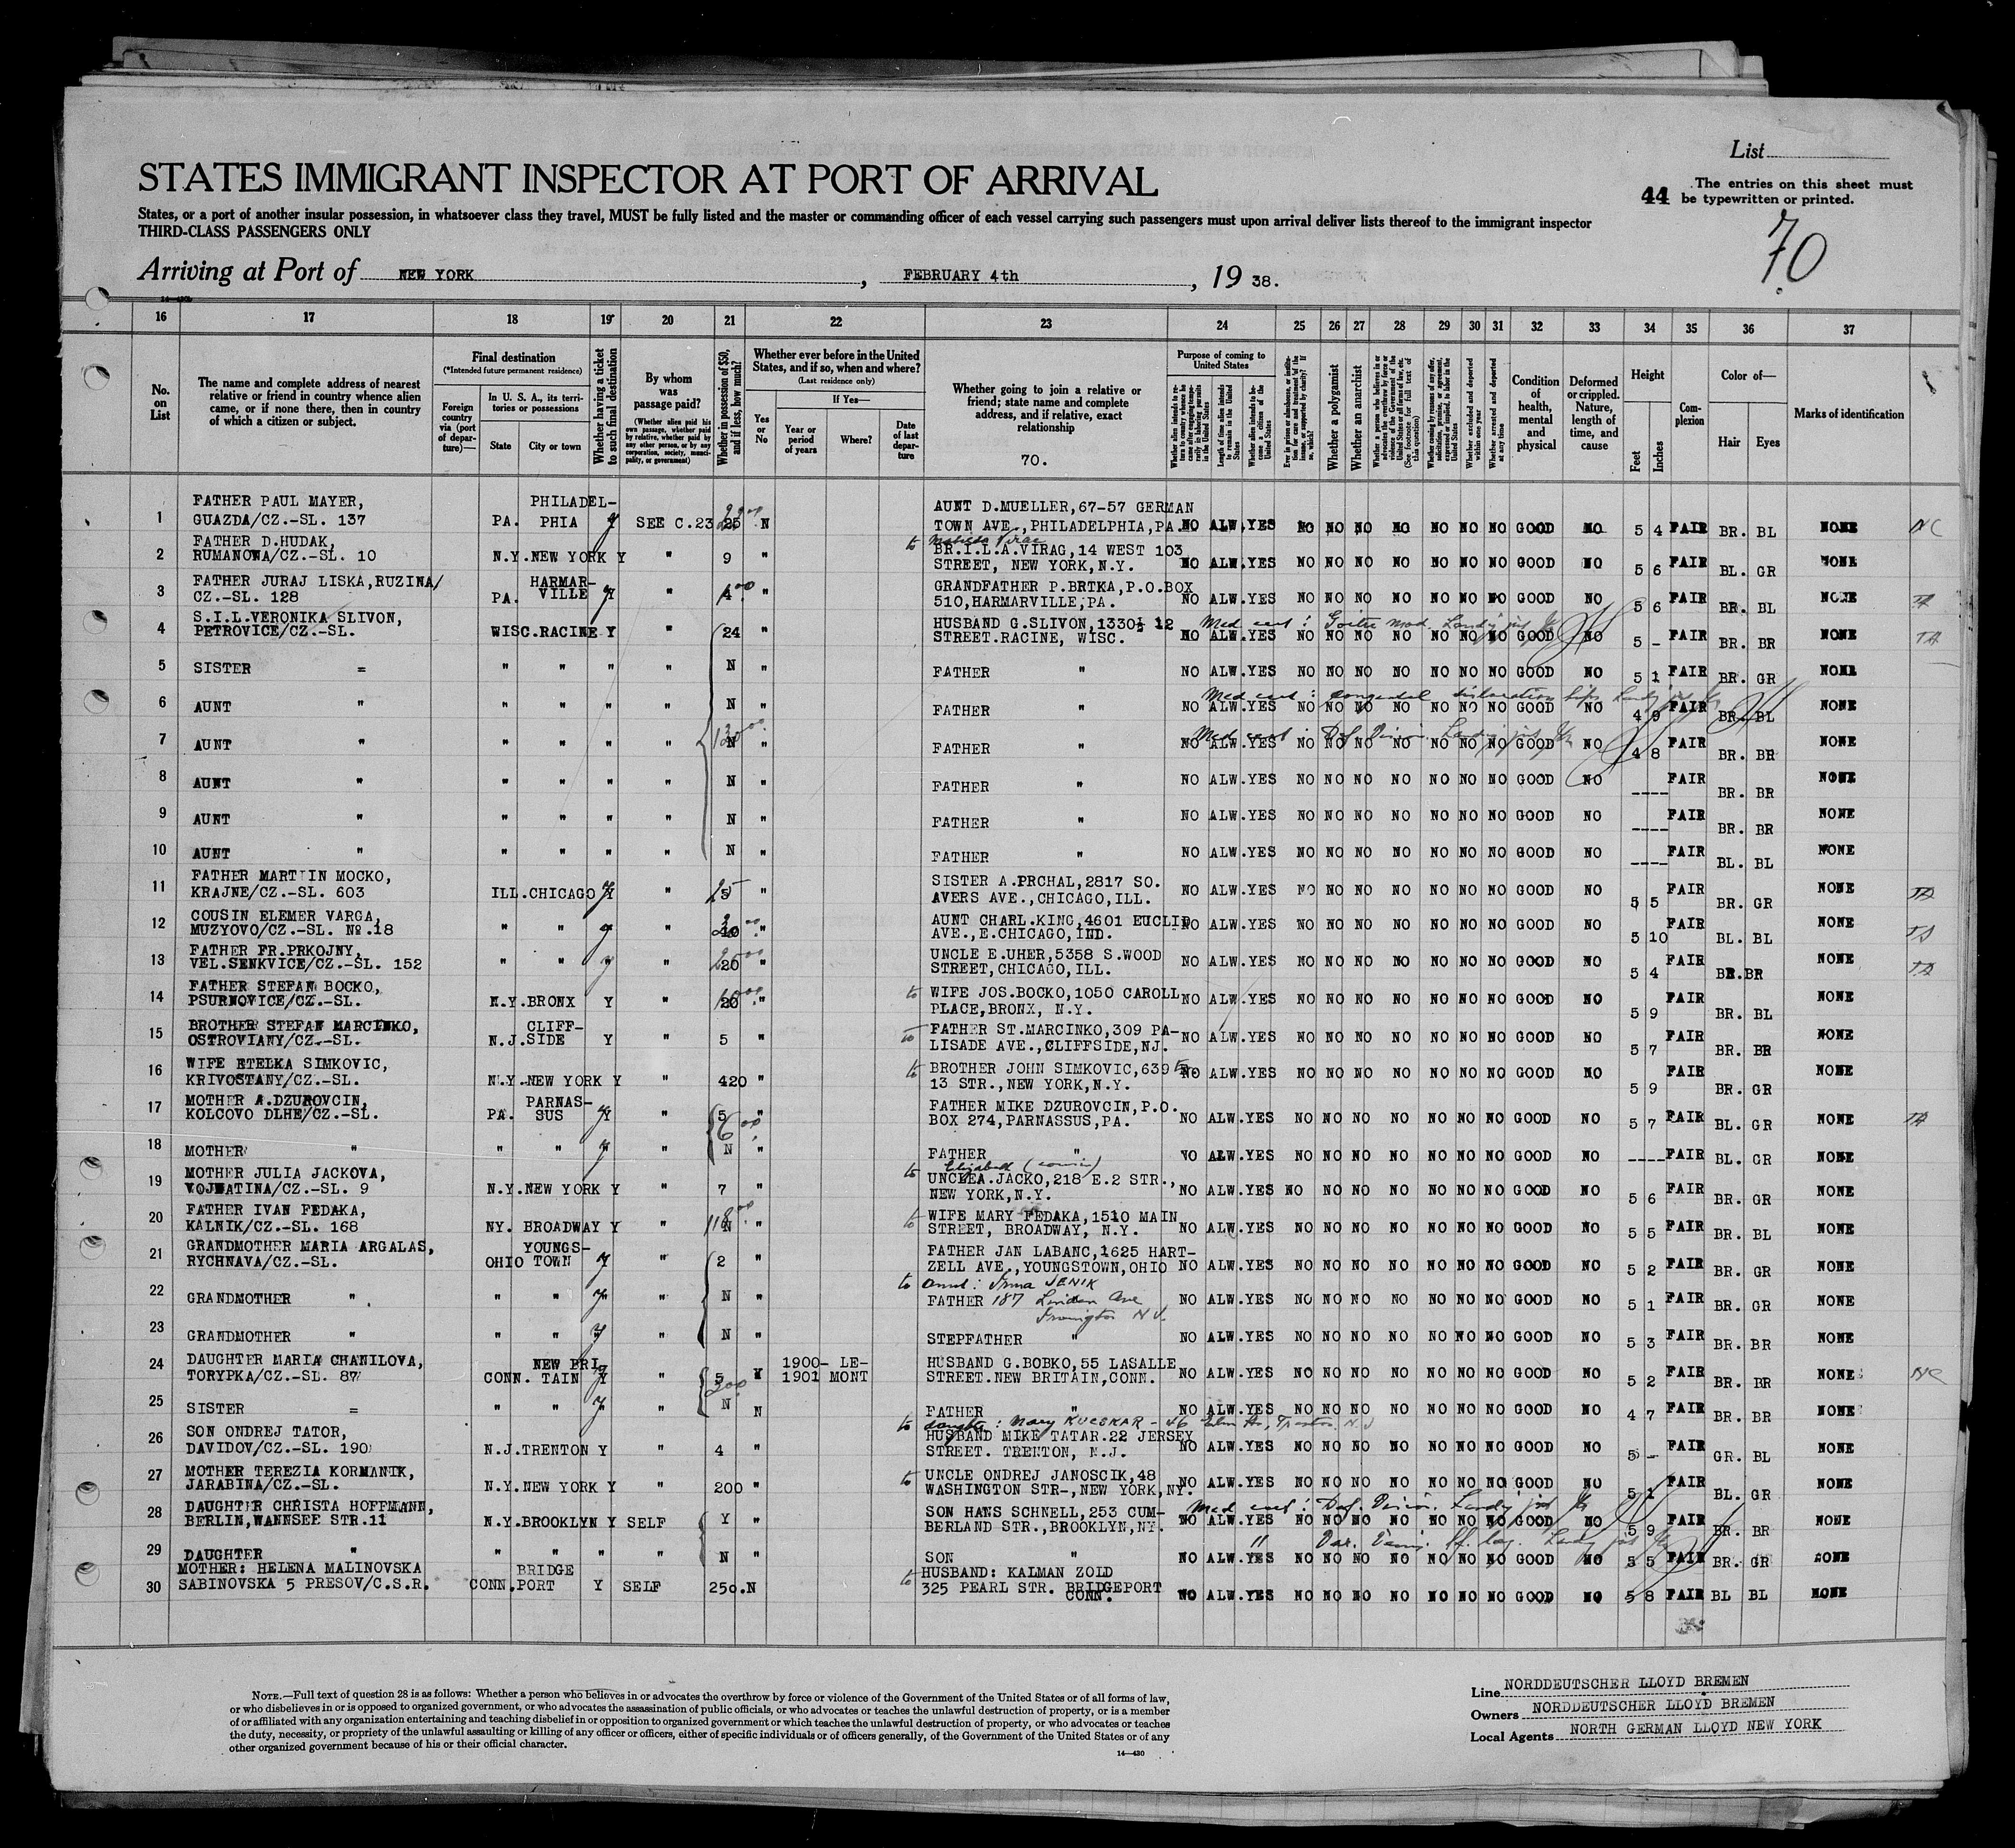 List
STATES IMMIGRANT INSPECTOR AT PORT OF ARRIVAL
44 The entries on this sheet must be typewritten or printed.
States, or a port of another insular possession, in whatsoever class they travel, MUST be fully listed and the master or commanding officer of each vessel carrying such passengers must upon arrival deliver lists thereof to the immigrant inspector
THIRD-CLASS PASSENGERS ONLY
70
Arriving at Port of NEW YORK, FEBRUARY 4th, 1938.
16 17 18 19 20 21 22 23 24 25 26 27 28 29 30 31 32 33 34 35 36 37
No. on List
The name and complete address of nearest relative or friend in country whence alien came, or if none there, then in country of which a citizen or subject.
Final destination
(*Intended future permanent residence)
Foreign country via (port of departure)—
In U. S. A., its territories or possessions
State
City or town
Whether having a ticket to such final destination
By whom was passage paid?
(Whether alien paid his own passage, whether paid by relative, whether paid by any other person, or by any corporation, society, municipality, or government)
Whether in possession of $50, and if less, how much?
Whether ever before in the United States, and if so, when and where?
(Last residence only)
Yes or No
If Yes—
Year or period of years
Where?
Date of last departure
Whether going to join a relative or friend; state name and complete address, and if relative, exact relationship
70.
Purpose of coming to United States
Whether alien intends to return to country whence he came after engaging temporarily in laboring pursuits in the United States
Length of time alien intends to remain in the United States
Whether alien intends to become a citizen of the United States
Ever in prison or almshouse, or institution for care and treatment of the insane, or supported by charity? If so, which?
Whether a polygamist
Whether an anarchist
Whether a person who believes in or advocates the overthrow by force or violence of the Government of the United States or all forms of law, etc. (See footnote for full text of this question)
Whether coming by reasons of any offer, solicitation, promise, or agreement, expressed or implied, to labor in the United States
Whether excluded and deported within one year
Whether arrested and deported at any time
Condition of health, mental and physical
Deformed or crippled. Nature, length of time, and cause
Height
Feet
Inches
Complexion
Color of—
Hair
Eyes
Marks of identification
1 FATHER PAUL MAYER, GUAZDA/CZ.-SL. 137 PA. PHILADELPHIA Y SEE C.23 25 N AUNT D.MUELLER,67-57 GERMAN TOWN AVE.,PHILADELPHIA,PA. NO ALW.YES NO NO NO NO NO NO NO GOOD NO 5 4 FAIR BR. BL NONE NC
2 FATHER D.HUDAK, RUMANOWA/CZ.-SL. 10 N.Y.NEW YORK Y " 9 " to BR.I.L.A.VIRAG,14 WEST 103 STREET, NEW YORK,N.Y. NO ALW.YES NO NO NO NO NO NO NO GOOD NO 5 6 FAIR BL. GR NONE
3 FATHER JURAJ LISKA,RUZINA/ CZ.-SL. 128 PA. HARMARVILLE Y " 4 " GRANDFATHER P.BRTKA,P.O.BOX 510,HARMARVILLE,PA. NO ALW.YES NO NO NO NO NO NO NO GOOD NO 5 6 FAIR BR. BL NONE
4 S.I.L.VERONIKA SLIVON, PETROVICE/CZ.-SL. WISC.RACINE Y " 24 " HUSBAND G.SLIVON,1330½ 12 STREET.RACINE, WISC. Med cert: Goitre mod. NO ALW.YES NO NO NO NO NO NO NO GOOD NO 5 - FAIR BR. BR NONE
5 SISTER = " " " " N " FATHER " NO ALW.YES NO NO NO NO NO NO NO GOOD NO 5 1 FAIR BR. GR NONE
6 AUNT " " " " " N " FATHER " Med cert: congenital dislocation hips NO ALW.YES NO NO NO NO NO NO NO GOOD NO 4 9 FAIR BR. BL NONE
7 AUNT " " " " " N " FATHER " Med cert: Def. Vision. NO ALW.YES NO NO NO NO NO NO NO GOOD NO 4 8 FAIR BR. BR NONE
8 AUNT " " " " " N " FATHER " NO ALW.YES NO NO NO NO NO NO NO GOOD NO ---- FAIR BR. BR NONE
9 AUNT " " " " " N " FATHER " NO ALW.YES NO NO NO NO NO NO NO GOOD NO ---- FAIR BR. BR NONE
10 AUNT " " " " " N " FATHER " NO ALW.YES NO NO NO NO NO NO NO GOOD NO ---- FAIR BL. BL NONE
11 FATHER MARTIIN MOCKO, KRAJNE/CZ.-SL. 603 ILL.CHICAGO Y " 5 " SISTER A.PRCHAL,2817 SO. AVERS AVE.,CHICAGO,ILL. NO ALW.YES NO NO NO NO NO NO NO GOOD NO 5 5 FAIR BR. GR NONE
12 COUSIN ELEMER VARGA, MUZYOVO/CZ.-SL. No.18 " " y " 10 " AUNT CHARL.KING,4601 EUCLID AVE.,E.CHICAGO,IND. NO ALW.YES NO NO NO NO NO NO NO GOOD NO 5 10 FAIR BL. BL NONE
13 FATHER FR.PRKOJNY, VEL.SENKVICE/CZ.-SL. 152 " " y " 20 " UNCLE E.UHER,5358 S.WOOD STREET,CHICAGO,ILL. NO ALW.YES NO NO NO NO NO NO NO GOOD NO 5 4 FAIR BR.BR NONE
14 FATHER STEFAN BOCKO, PSURNOVICE/CZ.-SL. N.Y.BRONX Y " 20 " to WIFE JOS.BOCKO,1050 CAROLL PLACE,BRONX, N.Y. NO ALW.YES NO NO NO NO NO NO NO GOOD NO 5 9 FAIR BR. BL NONE
15 BROTHER STEFAN MARCINKO, OSTROVIANY/CZ.-SL. N.J. CLIFFSIDE Y " 5 " to FATHER ST.MARCINKO,309 PALISADE AVE.,CLIFFSIDE,NJ. NO ALW.YES NO NO NO NO NO NO NO GOOD NO 5 7 FAIR BR. BR NONE
16 WIFE ETELKA SIMKOVIC, KRIVOSTANY/CZ.-SL. N.Y.NEW YORK Y " 420 " to BROTHER JOHN SIMKOVIC,639 E. 13 STR.,NEW YORK,N.Y. NO ALW.YES NO NO NO NO NO NO NO GOOD NO 5 9 FAIR BR. GR NONE
17 MOTHER A.DZUROVCIN, KOLCOVO DLHE/CZ.-SL. PA. PARNASSUS Y " 5 " FATHER MIKE DZUROVCIN,P.O. BOX 274,PARNASSUS,PA. NO ALW.YES NO NO NO NO NO NO NO GOOD NO 5 7 FAIR BL. GR NONE
18 MOTHER " " " y " N " FATHER " NO ALW.YES NO NO NO NO NO NO NO GOOD NO ---- FAIR BL. GR NONE
19 MOTHER JULIA JACKOVA, VOJNATINA/CZ.-SL. 9 N.Y.NEW YORK Y " 7 " to Elizabeth (cousin) UNCLEA.JACKO,218 E.2 STR., NEW YORK,N.Y. NO ALW.YES NO NO NO NO NO NO NO GOOD NO 5 6 FAIR BR. GR NONE
20 FATHER IVAN FEDAKA, KALNIK/CZ.-SL. 168 NY. BROADWAY Y " N " to WIFE MARY FEDAKA,1510 MAIN STREET, BROADWAY, N.Y. NO ALW.YES NO NO NO NO NO NO NO GOOD NO 5 5 FAIR BR. BL NONE
21 GRANDMOTHER MARIA ARGALAS, RYCHNAVA/CZ.-SL. OHIO YOUNGSTOWN y " 2 " FATHER JAN LABANC,1625 HARTZELL AVE.,YOUNGSTOWN,OHIO NO ALW.YES NO NO NO NO NO NO NO GOOD NO 5 2 FAIR BR. GR NONE
22 GRANDMOTHER " " " y " N " to aunt: Irma JENIK FATHER 187 Linden Ave Irvington N.J. NO ALW.YES NO NO NO NO NO NO NO GOOD NO 5 1 FAIR BR. GR NONE
23 GRANDMOTHER " " " y " N " STEPFATHER " NO ALW.YES NO NO NO NO NO NO NO GOOD NO 5 3 FAIR BR. BR NONE
24 DAUGHTER MARIA CHANILOVA, TORYPKA/CZ.-SL. 87 CONN. NEW BRITAIN Y " 5 Y 1900-1901 LEMONT HUSBAND G.BOBKO,55 LASALLE STREET.NEW BRITAIN,CONN. NO ALW.YES NO NO NO NO NO NO NO GOOD NO 5 2 FAIR BR. BR NONE NC
25 SISTER = " " y " N N FATHER " NO ALW.YES NO NO NO NO NO NO NO GOOD NO 4 7 FAIR BR. BR NONE
26 SON ONDREJ TATOR, DAVIDOV/CZ.-SL. 190 N.J.TRENTON Y " 4 " to daughter: Mary KUCSKAR - 46 Elm Av, Trenton N.J HUSBAND MIKE TATAR.22 JERSEY STREET. TRENTON, N.J. NO ALW.YES NO NO NO NO NO NO NO GOOD NO 5 - FAIR GR. BL NONE
27 MOTHER TEREZIA KORMANIK, JARABINA/CZ.-SL. N.Y.NEW YORK Y " 200 " to UNCLE ONDREJ JANOSCIK,48 WASHINGTON STR-,NEW YORK,NY. NO ALW.YES NO NO NO NO NO NO NO GOOD NO 5 1 FAIR BL. GR NONE
28 DAUGHTER CHRISTA HOFFMANN, BERLIN,WANNSEE STR.11 N.Y.BROOKLYN Y SELF Y " SON HANS SCHNELL,253 CUMBERLAND STR.,BROOKLYN,NY. Med cert: Def. Vision. NO ALW.YES NO NO NO NO NO NO NO GOOD NO 5 9 FAIR BR. BR NONE
29 DAUGHTER " " " " " N " SON " NO ALW.YES NO NO NO NO NO NO NO GOOD NO 5 5 FAIR BR. GR NONE
30 MOTHER: HELENA MALINOVSKA SABINOVSKA 5 PRESOV/C.S.R. CONN. BRIDGEPORT Y SELF 250.N to HUSBAND: KALMAN ZOLD 325 PEARL STR. BRIDGEPORT CONN. NO ALW.YES NO NO NO NO NO NO NO GOOD NO 5 8 FAIR BL BL NONE
NOTE.—Full text of question 28 is as follows: Whether a person who believes in or advocates the overthrow by force or violence of the Government of the United States or of all forms of law,
or who disbelieves in or is opposed to organized government, or who advocates the assassination of public officials, or who advocates or teaches the unlawful destruction of property, or is a member
of or affiliated with any organization entertaining and teaching disbelief in or opposition to organized government or which teaches the unlawful destruction of property, or who advocates or teaches
the duty, necessity, or propriety of the unlawful assaulting or killing of any officer or officers, either of specific individuals or of officers generally, of the Government of the United States or of any
other organized government because of his or their official character.
14—430
Line NORDDEUTSCHER LLOYD BREMEN
Owners NORDDEUTSCHER LLOYD BREMEN
Local Agents NORTH GERMAN LLOYD NEW YORK